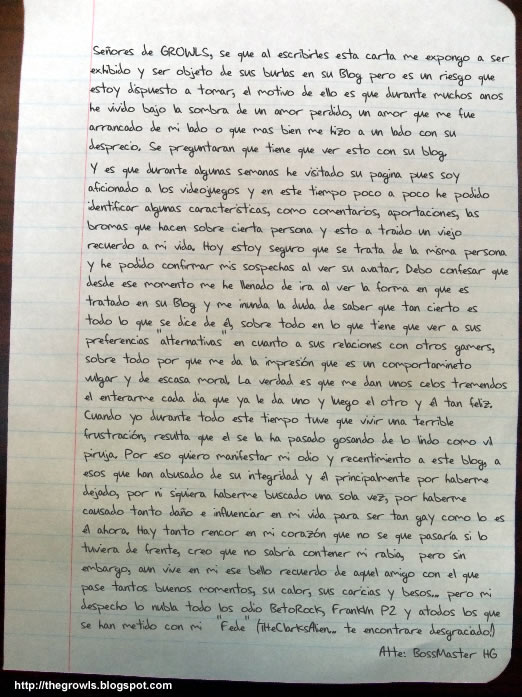 Señores de GROWLS, se que al escribirles esta carta me expongo a ser
exhibido y ser objeto de sus burlas en su Blog pero es un riesgo que
estoy dispuesto a tomar, el motivo de ello es que durante muchos anos
he vivido bajo la sombra de un amor perdido, un amor que me fue
arrancado de mi lado o que mas bien me hizo a un lado con su
desprecio. Se preguntaran que tiene que ver esto con su blog.
Y es que durante algunas semanas he visitado su pagina pues soy
aficionado a los videojuegos y en este tiempo poco a poco he podido
identificar algunas caracteristicas, como comentarios, aportaciones, las
bromas que hacen sobre cierta persona y esto a traido un viejo
recuerdo a mi vida. Hoy estoy seguro que se trata de la misma persona
y he podido confirmar mis sospechas al ver su avatar. Debo confesar que
desde ese momento me he llenado de ira al ver la forma en que es
tratado en su Blog y me inunda la duda de saber que tan cierto es
todo lo que se dice de él, sobre todo en lo que tiene que ver a sus
preferencias "alternativas" en cuanto a sus relaciones con otros gamers,
sobre todo por que me da la impresión que es un comportamineto
vulgar y de escasa moral. La verdad es que me dan unos celos tremendos
el enterarme cada dia que ya le da uno y luego el otro y él tan feliz.
Cuando yo durante todo este tiempo tuve que vivir una terrible
frustración, resulta que el se la ha pasado gosando de lo lindo como vil
piruja. Por eso quiero manifestar mi odio y recentimiento a este blog, a
esos que han abusado de su integridad y él principalmente por haberme
dejado, por ni squiera haberme buscado una sola vez, por haberme
causado tanto daño e influenciar en mi vida para ser tan gay como lo es
él ahora. Hay tanto rencor en mi corazón que no se que pasaría si lo
tuviera de frente, creo que no sabria contener mi rabia, pero sin
embargo, aun vive en mi ese bello recuerdo de aquel amigo con el que
pase tantos buenos momentos, su calor, sus caricias y besos... pero mi
despecho lo nubla todo los odio BetoRock, Franklin P2 y atodos los que
se han metido con mi "Fede" (TitteClarksAlien... te encontrare desgraciado!)
Atte: BossMaster HG
http://thegrowls.blogspot.com